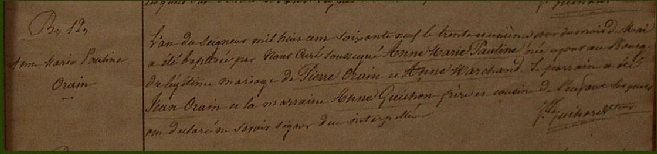 Bn 12,
Anne Marie Pauline
Orain
L'an du Seigneur mil huit cent soixante neuf le trente jour du mois de Mai
a été baptisée par Nous Curé soussigné Anne Marie Pauline née au Bourg
du légitime mariage de Pierre Orain et Anne Marchand. Le parrain a été
Jean Orain et la marraine Anne Guihon frère et cousine de l'enfant lesquels
ont déclaré ne savoir signer de ce interpellés
J. Guihard